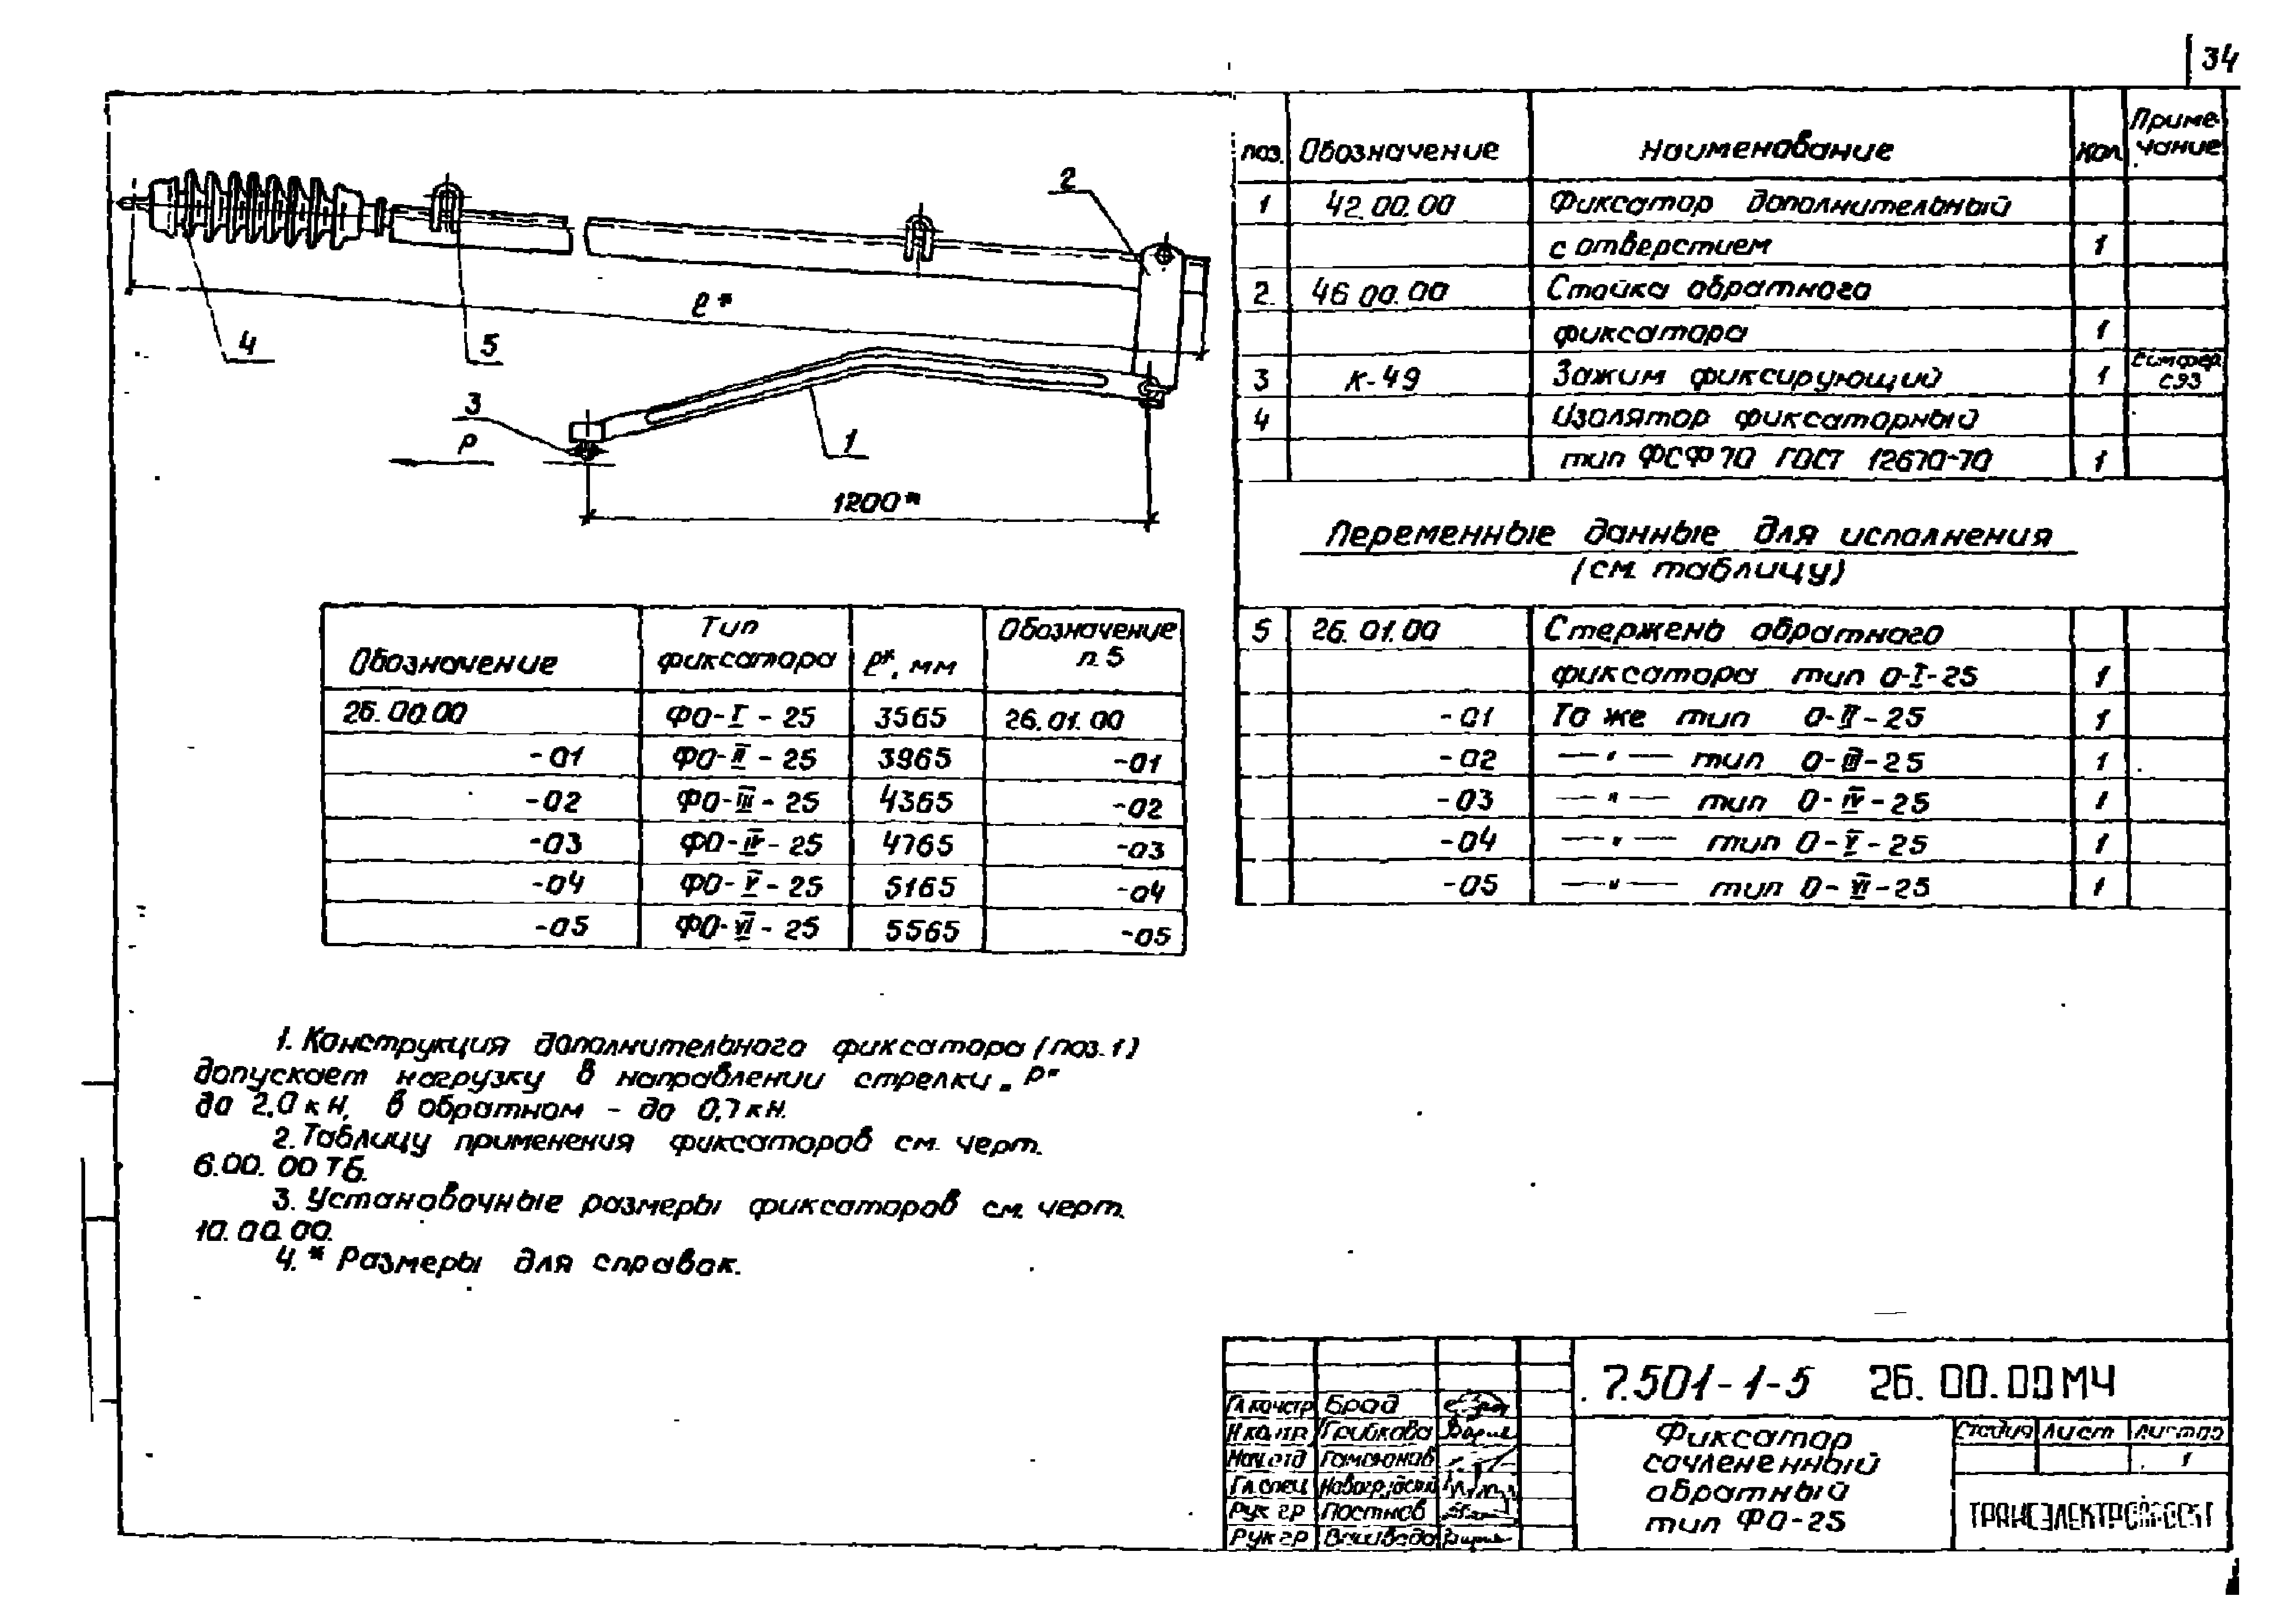 34
2
ℓ*
4
5
3
P
1
1200*
поз. Обозначение Наименование Кол Приме-
чание
1 42.00.00 Фиксатор дополнительный
с отверстием 1
2. 46.00.00 Стойка обратного
фиксатора 1
3 К-49 Зажим фиксирующий 1 Симфер.
СЭЗ
4 Изолятор фиксаторный
тип ФСФ 70 ГОСТ 12670-70 1
Переменные данные для исполнения
(см. таблицу)
5 26.01.00 Стержень обратного
фиксатора тип О-I-25 1
-01 То же тип О-II-25 1
-02 —"— тип О-III-25 1
-03 —"— тип О-IV-25 1
-04 —"— тип О-V-25 1
-05 —"— тип О-VI-25 1
Обозначение Тип
фиксатора ℓ*, мм Обозначение
п. 5
26.00.00 ФО-I-25 3565 26.01.00
-01 ФО-II-25 3965 -01
-02 ФО-III-25 4365 -02
-03 ФО-IV-25 4765 -03
-04 ФО-V-25 5165 -04
-05 ФО-VI-25 5565 -05
1. Конструкция дополнительного фиксатора (поз. 1)
допускает нагрузку в направлении стрелки „P"
до 2,0 кН, в обратном - до 0,7 кН.
2. Таблицу применения фиксаторов см. черт.
6.00.00 ТБ.
3. Установочные размеры фиксаторов см. черт.
10.00.00.
4. * Размеры для справок.
7.501-1-5 26.00.00 МЧ
Гл. констр Брод
Н.контр. Грибкова
Нач. отд
Гл. спец
Рук гр Постнов
Рук гр
Фиксатор
сочлененный
обратный
тип ФО-25
Стадия Лист Листов
1
ТРАНСЭЛЕКТРОПРОЕКТ